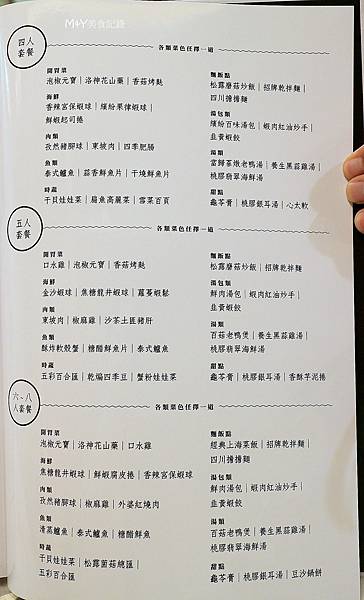 M+Y美食記錄
四人
套餐
各類菜色任擇一道
開胃菜
泡椒元寶｜洛神花山藥｜香菇烤麩
海鮮
香辣宮保蝦球｜繽紛果律蝦球｜
鮮蝦起司捲
肉類
孜然豬腳球｜東坡肉｜四季肥腸
魚類
泰式鱸魚｜蒜香鮮魚片｜干燒鮮魚片
時蔬
干貝娃娃菜｜扁魚高麗菜｜雪菜百頁
麵飯點
松露蘑菇炒飯｜招牌乾拌麵｜
四川擔擔麵
湯包類
繽紛百味湯包｜蝦肉紅油炒手｜
韭黃蝦餃
湯類
當歸茶燉老鴨湯｜養生黑蒜雞湯｜
桃膠翡翠海鮮湯
甜點
龜苓膏｜桃膠銀耳湯｜心太軟
五人
套餐
各類菜色任擇一道
開胃菜
口水雞｜泡椒元寶｜香菇烤麩
海鮮
金沙蝦球｜焦糖龍井蝦球｜蘿蔓蝦鬆
肉類
東坡肉｜椒麻雞｜沙茶土匪豬肝
魚類
酥炸軟殼蟹｜糖醋鮮魚片｜泰式鱸魚
時蔬
五彩百合匯｜乾煸四季豆｜蟹粉娃娃菜
麵飯點
松露蘑菇炒飯｜招牌乾拌麵
湯包類
鮮肉湯包｜蝦肉紅油炒手｜
韭黃蝦餃
湯類
百菇老鴨煲｜養生黑蒜雞湯｜
桃膠翡翠海鮮湯
甜點
龜苓膏｜桃膠銀耳湯｜香酥芋泥捲
六~八
人套餐
各類菜色任擇一道
開胃菜
泡椒元寶｜洛神花山藥｜口水雞
海鮮
焦糖龍井蝦球｜鮮蝦腐皮捲｜香辣宮保蝦球
肉類
孜然豬腳球｜椒麻雞｜外婆紅燒肉
魚類
清蒸鱸魚｜泰式鱸魚｜糖醋鮮魚
時蔬
干貝娃娃菜｜松露菌菇總匯｜
五彩百合匯
麵飯點
經典上海菜飯｜招牌乾拌麵｜
四川擔擔麵
湯包類
鮮肉湯包｜蝦肉紅油炒手｜
韭黃蝦餃
湯類
百菇老鴨煲｜養生黑蒜雞湯｜
桃膠翡翠海鮮湯
甜點
龜苓膏｜桃膠銀耳湯｜豆沙鍋餅